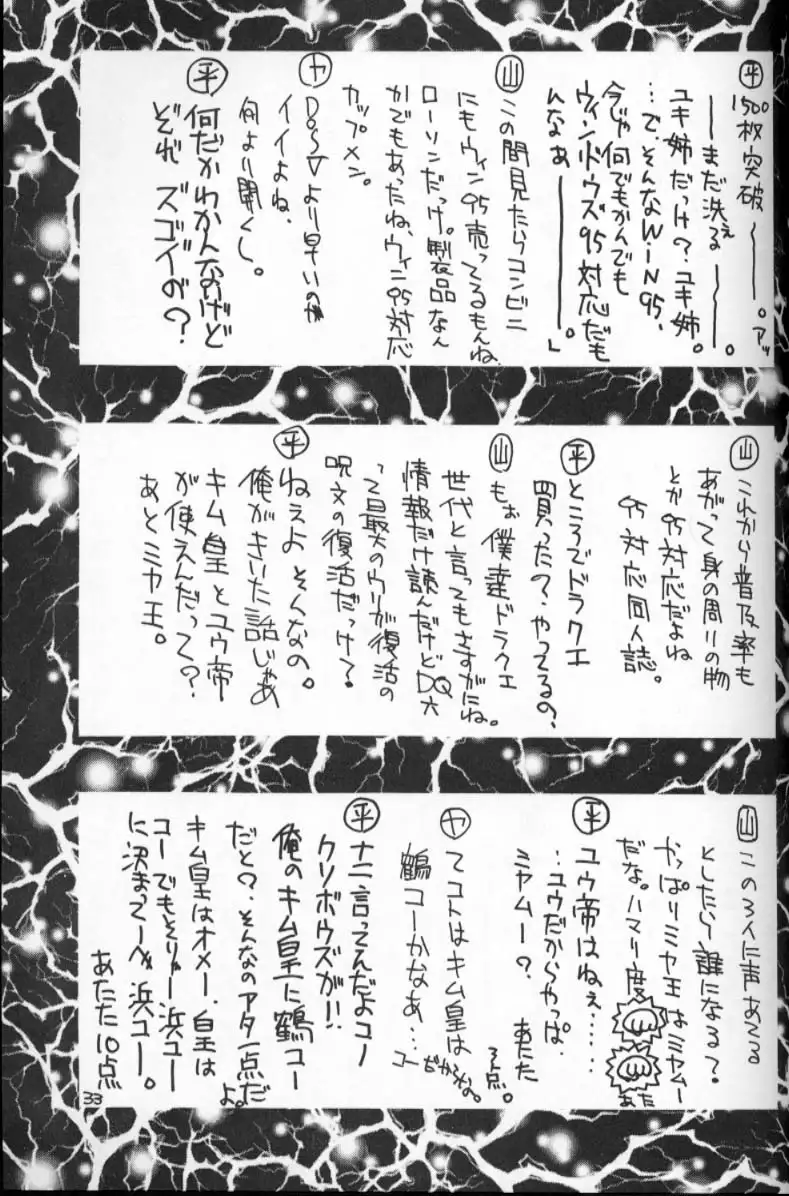 ㊥ 1500枚突破〜〜。アッ
――まだ洗ぇる――。
ユキ姉だっけ?ユキ姉。
…で、そんなWiN95、
今じゃ何でもかんでも
ウィンドウズ95対応だも
んなぁ――――。」
山 この間見たらコンビニ
にもウィン95売ってるもんね、
ローソンだっけ。製衣品なん
かでもあったね、ウィン95対応
カップメン。
ヤ DOS/Vより早いのが
イイよね、
何より聞くし。
平 何だかわかんないけど
ぞれ ズゴイが?
山 これから普及率も
あがって身の周りの物
とか95対応だよね
95対応同人誌。
平 ところでドラクエ
買ったの?、やってるの?、
山 もぉ僕達ドラクエ
世代と言ってもさすがにね。
情報だけ読んだけどDQ六
って最大のウリが復活の
呪文の復活だっけ?
平 ねぇよ そんなの。
俺がきいた話じゃあ
キム皇とユウ帝
が使えんだって?
あとミヤ王。
山 この3人に声あてる
としたら誰になる?
やっぱりミヤ王はミヤムー
だな。ハマリ度
あた
平 ユウ帝はねぇ……
…ユウだからやっぱ
ミヤムー? あたた
3点。
ヤ てコトはキム皇は
鶴コーかなあ…
コーだからね。
平 ナニ言ってんだよコノ
クソボウズが!!
俺のキム皇に鶴コー
だと?そんなのアタ一点だ
よ。
キム皇はオメー、皇は
コーでもそりゃー浜コー
に決まってべ浜コー。
あたた10点
33